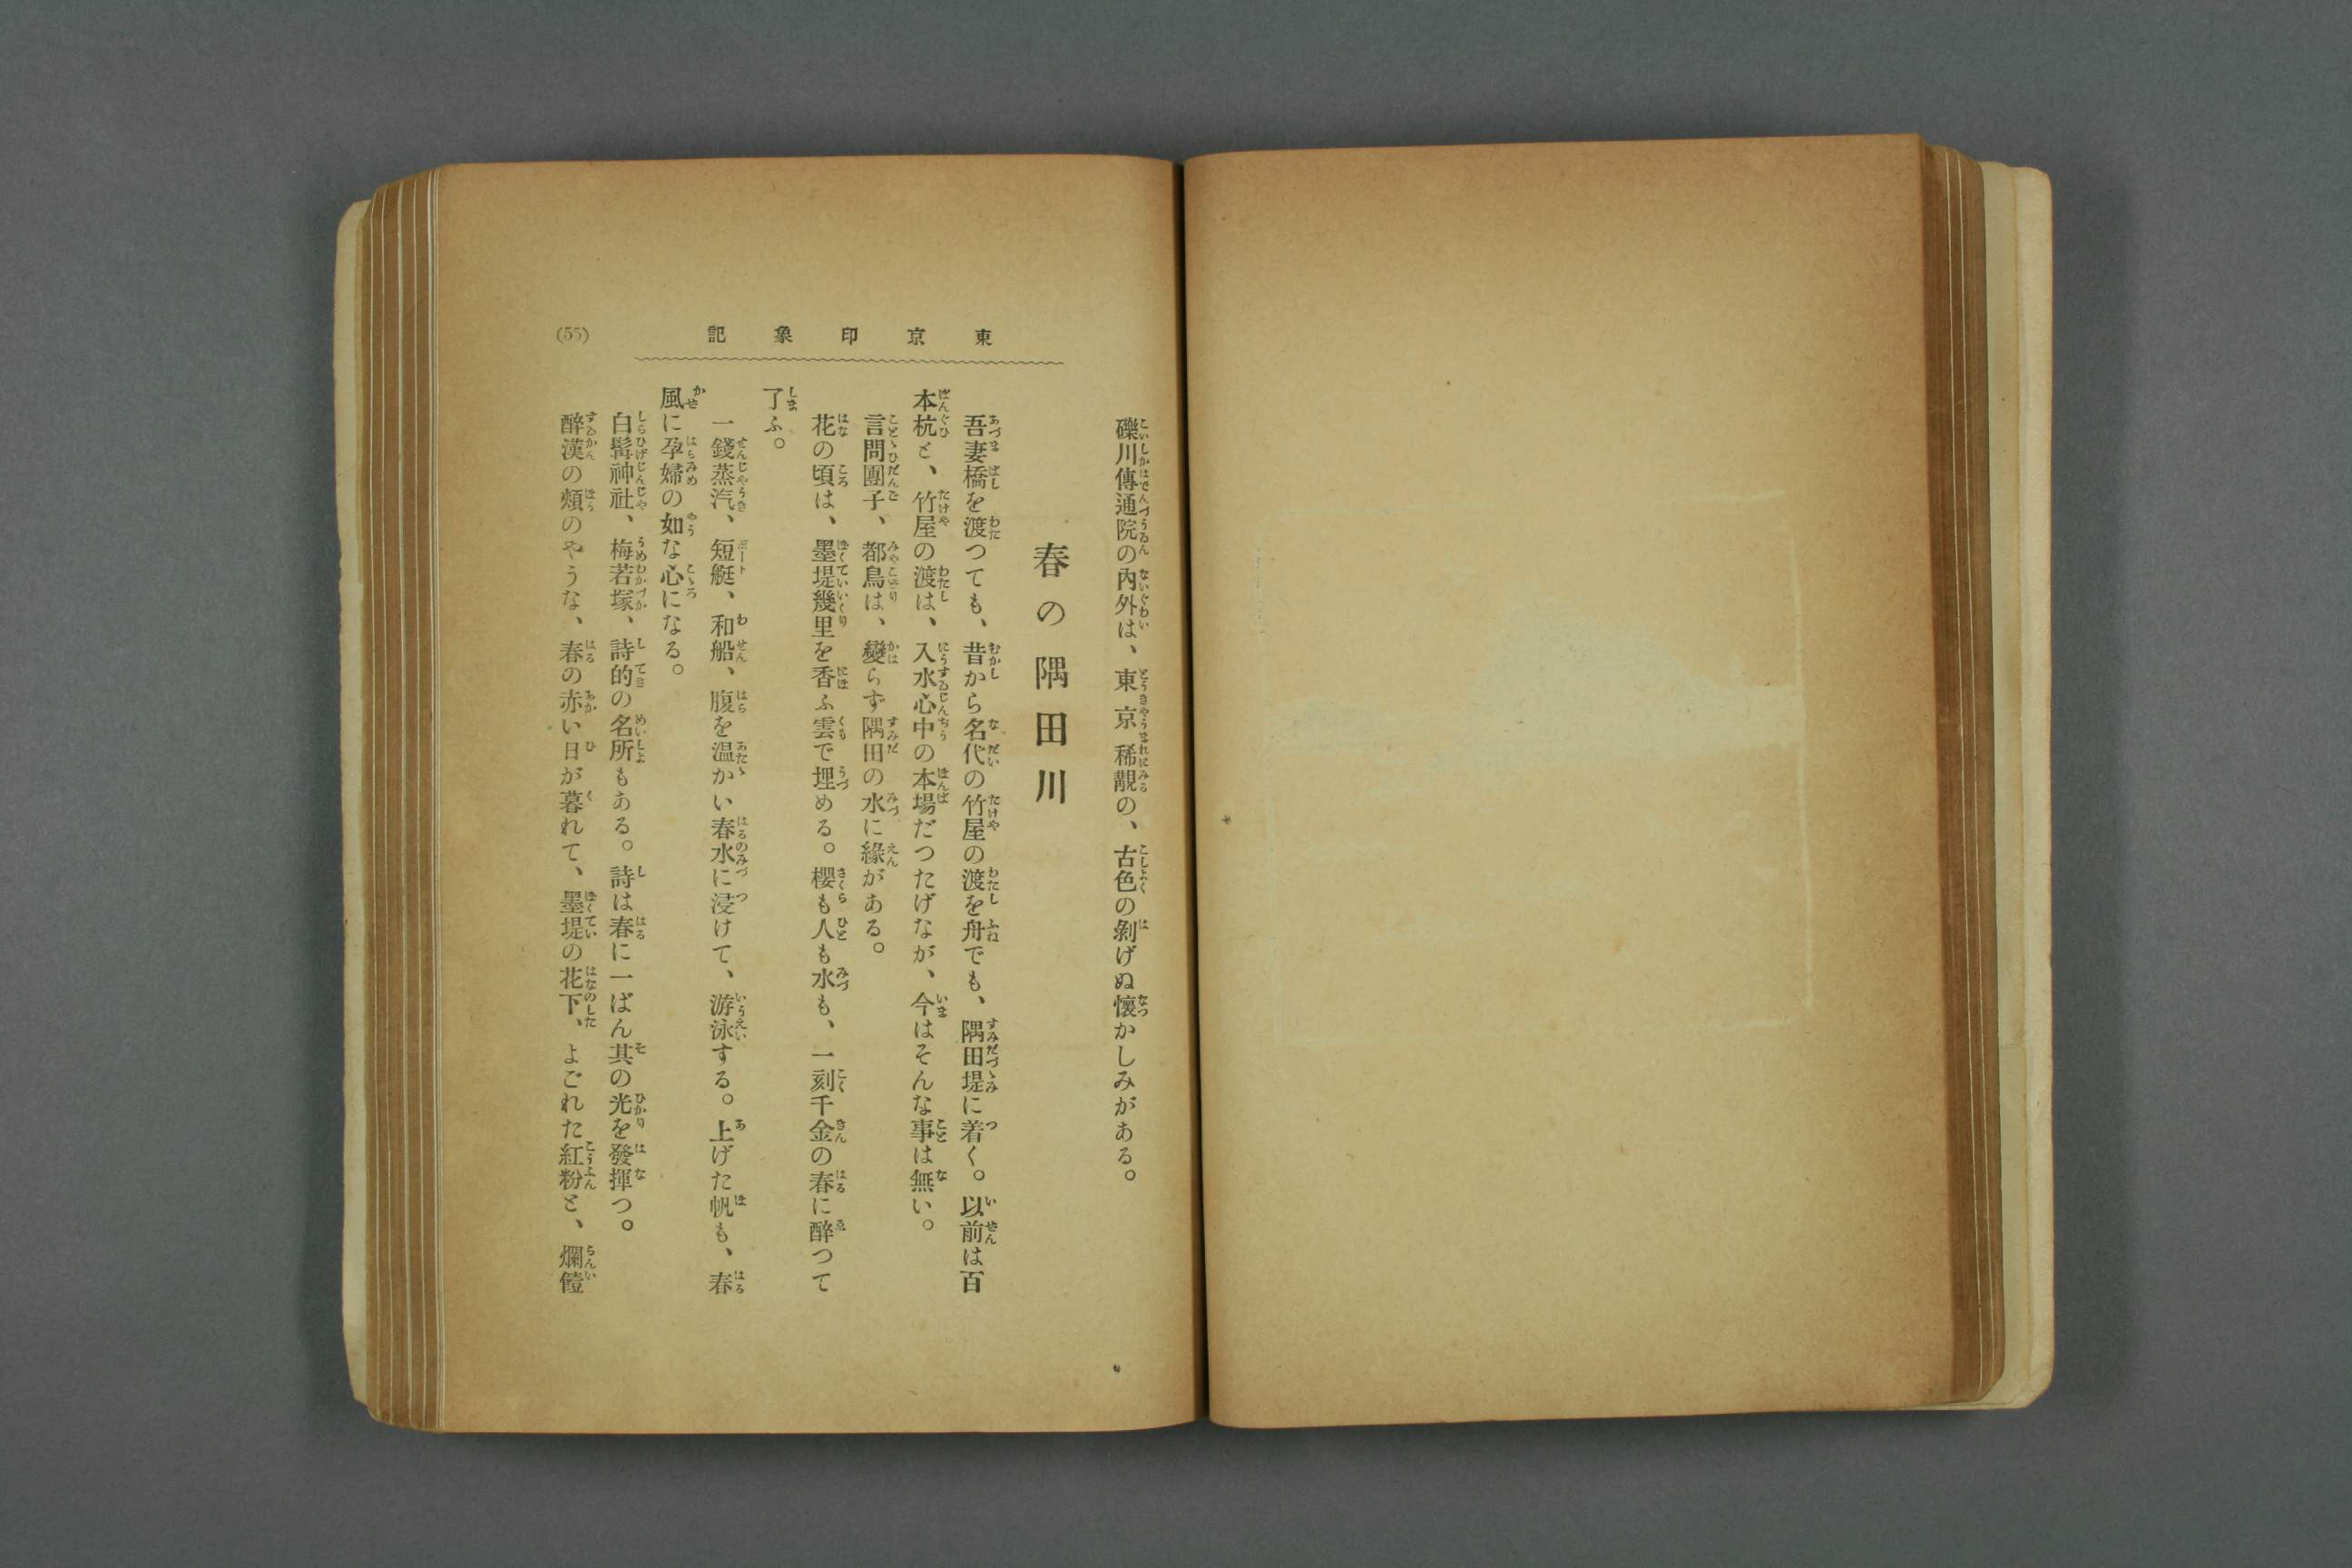 東京印象記
(55)
礫川傳通院の內外は、東京稀覯の、古色の剝げぬ懷かしみがある。
春の隅田川
吾妻橋を渡つても、昔から名代の竹屋の渡を舟でも、隅田堤に着く。以前は百
本杭と、竹屋の渡は、入水心中の本場だつたげなが、今はそんな事は無い。
言問團子、都鳥は、變らず隅田の水に緣がある。
花の頃は、墨堤幾里を香ふ雲で埋める。櫻も人も水も、一刻千金の春に醉つて
了ふ。
一錢蒸汽、短艇、和船、腹を温かい春水に浸けて、游泳する。上げた帆も、春
風に孕婦の如な心になる。
白髯神社、梅若塚、詩的の名所もある。詩は春に一ばん其の光を發揮つ。
醉漢の頰のやうな、春の赤い日が暮れて、墨堤の花下、よごれた紅粉と、爛饐